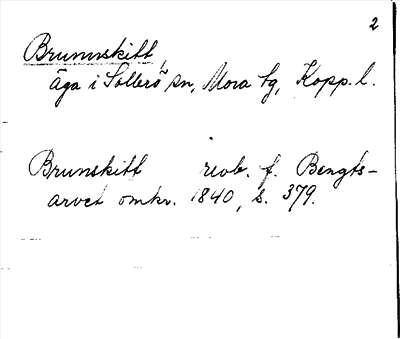 2
Brunnskitt,
äga i Sollerö sn, Mora tg, Kopp. l.
Brunskitt reob. f. Bengts-
arvet omkr. 1840, s. 379.